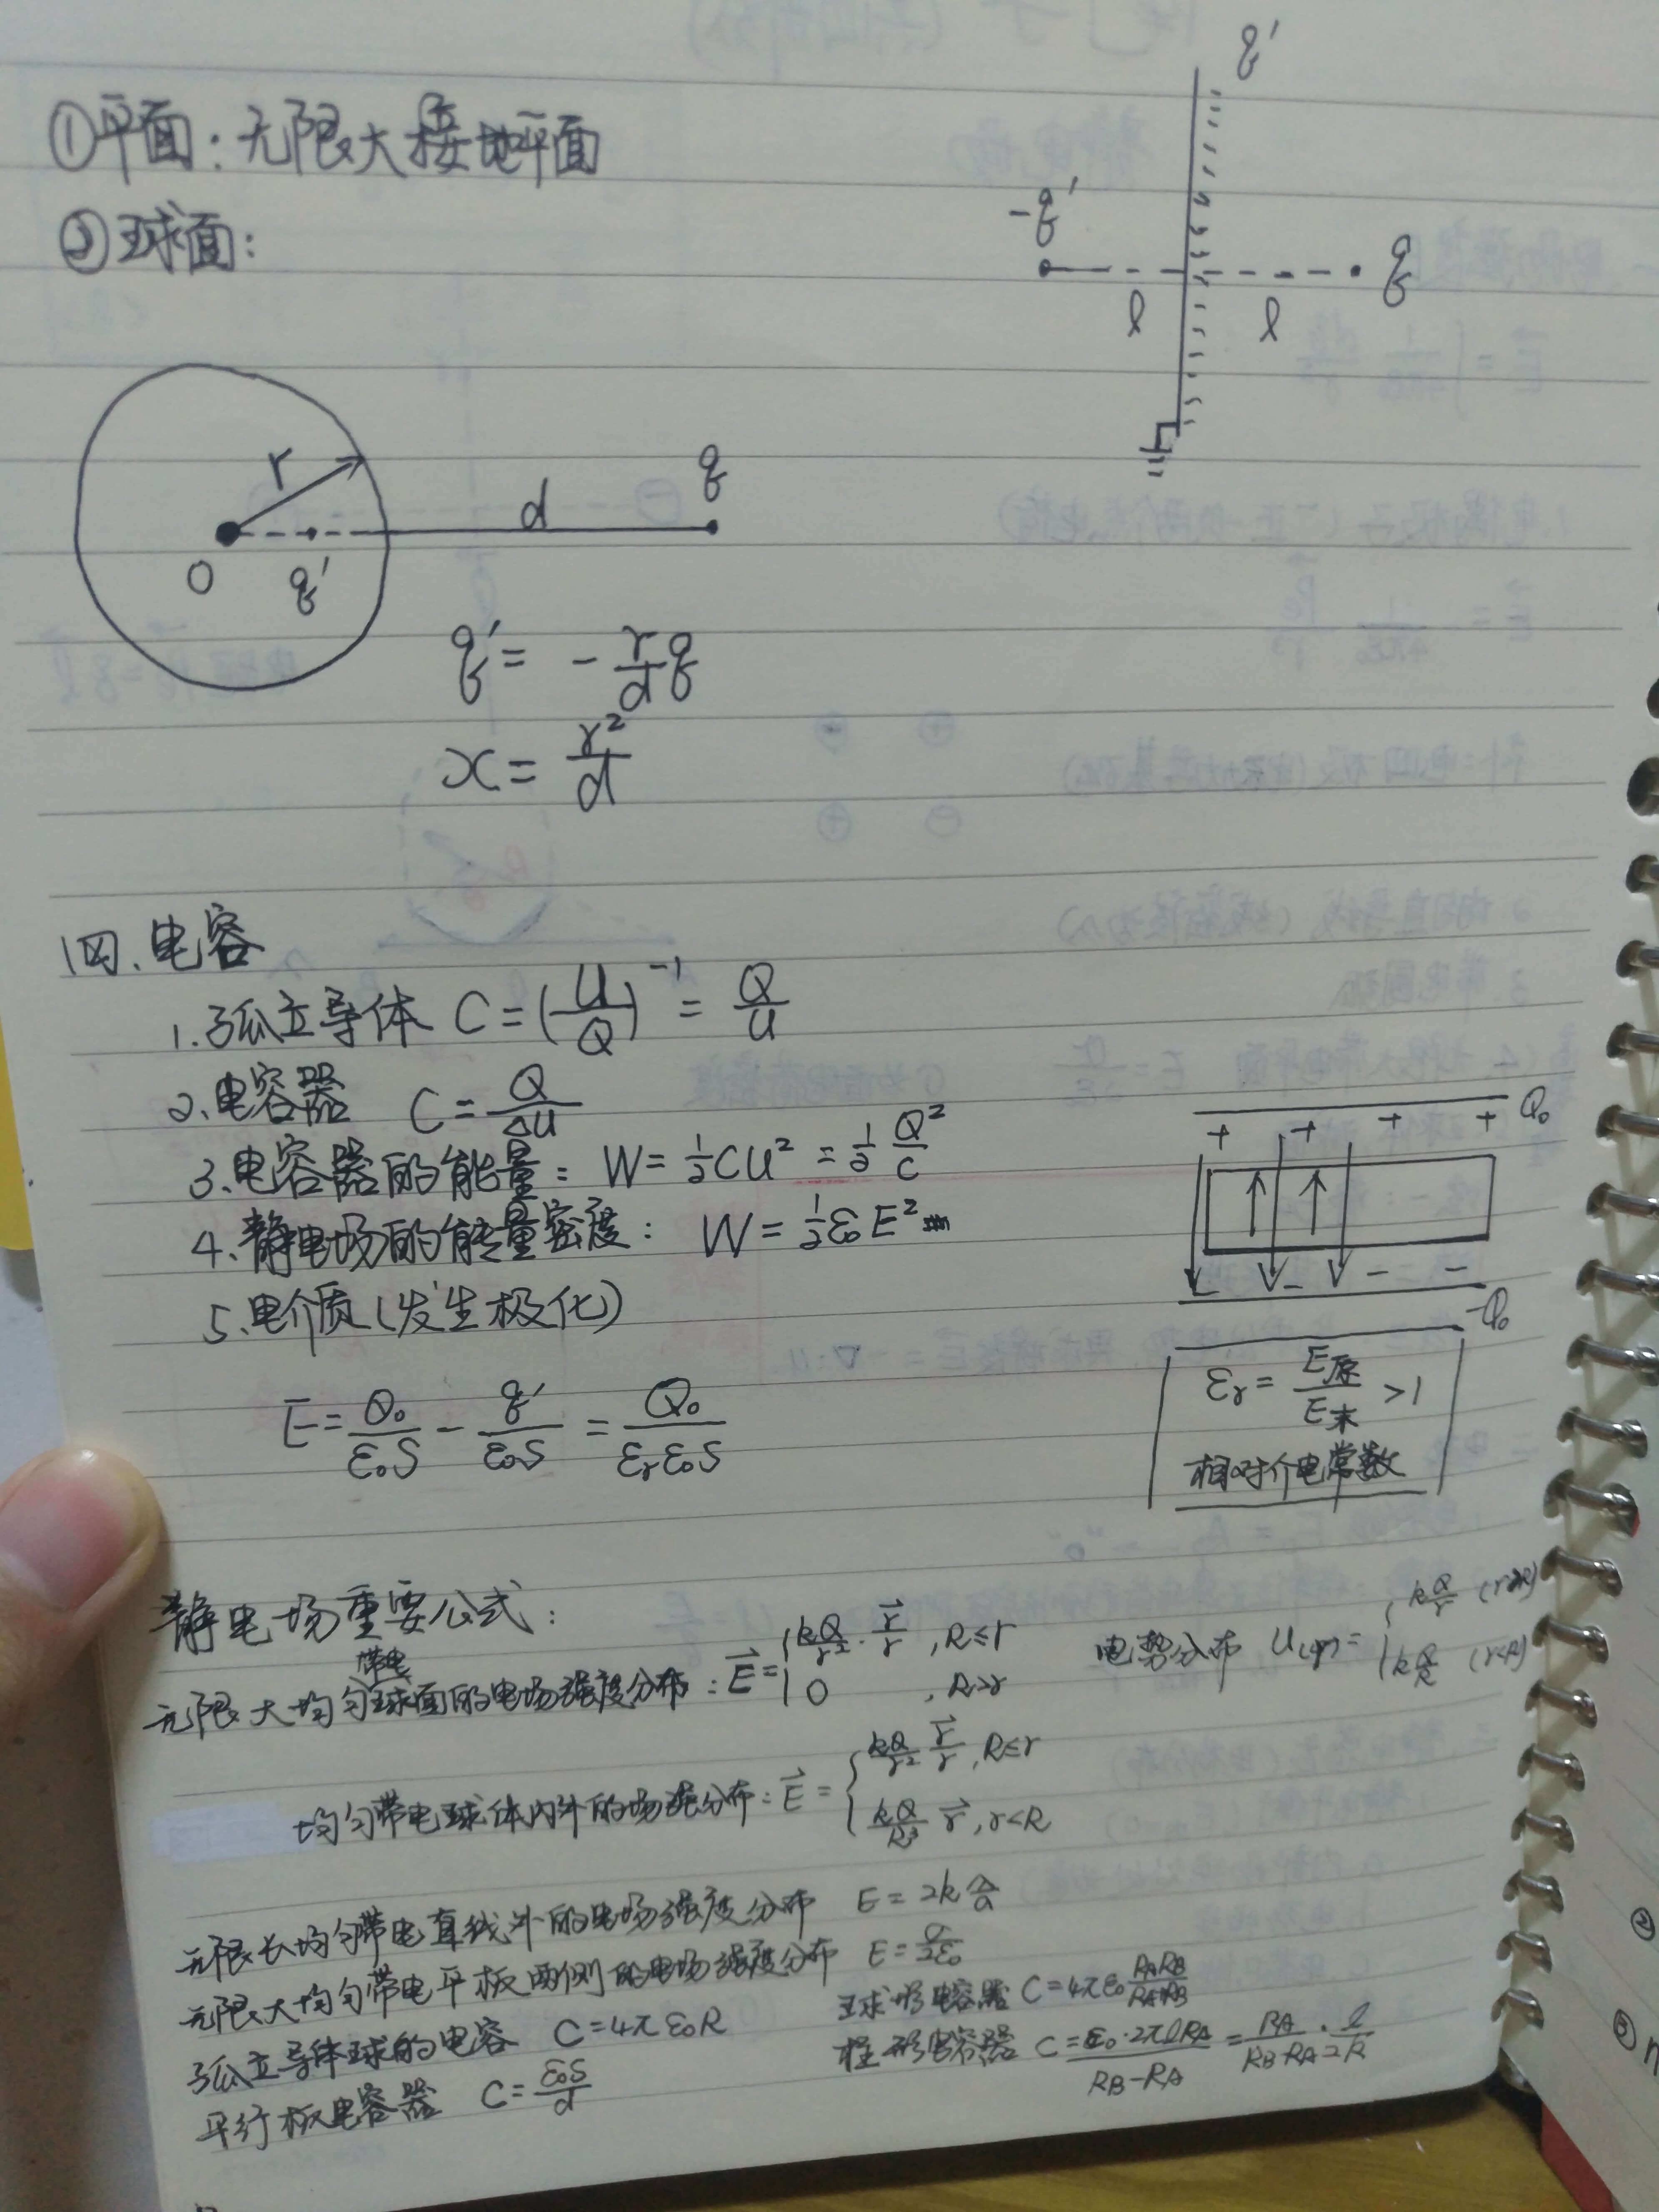 ①平面：无限大接地平面
②球面：
q'
-q'
q
l
l
r
d
q
O
q'
q' = - r/d q
x = r²/d
四、电容
1.孤立导体 C=(U/Q)⁻¹ = Q/U
2、电容器 C = Q/ΔU
3、电容器的能量：W = ½CU² = ½ Q²/C
4、静电场的能量密度：W = ½ε₀E²
5、电介质(发生极化)
+ + + + Q₀
- - - -Q₀
E = Q₀/ε₀S - q'/ε₀S = Q₀/εᵣε₀S
εᵣ = E原/E末 >1
相对介电常数
静电场重要公式：
无限大均匀带电球面的电场强度分布：E⃗ = { kQ/r² · r⃗/r , R≤r
0 , R>r
电势分布 U(r) = { kQ/r (r≥R)
kQ/R (r<R)
均匀带电球体内外的场强分布：E⃗ = { kQ/r² r⃗/r , R≤r
kQ/R³ r⃗ , r<R
无限长均匀带电直线外的电场强度分布 E = 2k λ/a
无限大均匀带电平板两侧的电场强度分布 E = σ/2ε₀
孤立导体球的电容 C=4πε₀R
球形电容器 C=4πε₀
平行板电容器 C = ε₀S/d
柱形电容器 C = ε₀·2πlRA/RB-RA = RA/RB-RA · l/2k